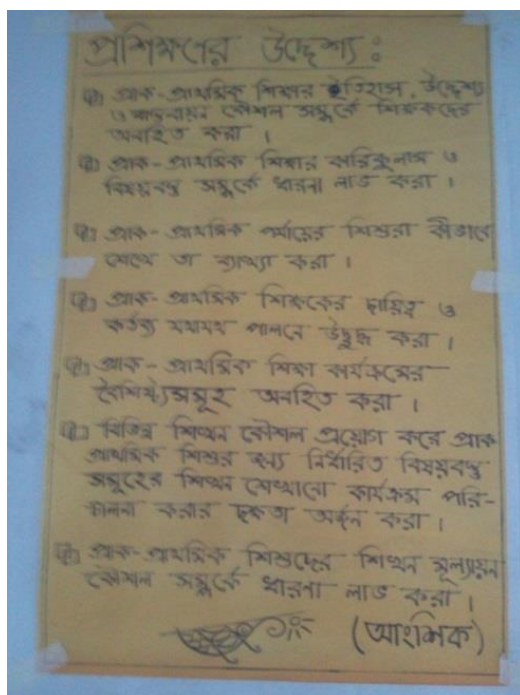 প্রশিক্ষণের উদ্দেশ্য :
প্রাক-প্রাথমিক শিক্ষার ইতিহাস, উদ্দেশ্য
ও বাস্তবায়ন কৌশল সম্পর্কে শিক্ষকদের
অবহিত করা ।
প্রাক-প্রাথমিক শিক্ষার কারিকুলাম ও
বিষয়বস্তু সম্পর্কে ধারনা লাভ করা ।
প্রাক-প্রাথমিক পর্যায়ের শিশুরা কীভাবে
শেখে তা ব্যাখ্যা করা ।
প্রাক-প্রাথমিক শিক্ষকের দায়িত্ব ও
কর্তব্য যথাযথ পালনে উদ্বুদ্ধ করা ।
প্রাক-প্রাথমিক শিক্ষা কার্যক্রমের
বৈশিষ্ট্যসমূহ অবহিত করা ।
বিভিন্ন শিখন কৌশল প্রয়োগ করে প্রাক
প্রাথমিক শিশুর জন্য নির্ধারিত বিষয়বস্তু
সমূহের শিখন শেখানো কার্যক্রম পরি-
চালনা করার দক্ষতা অর্জন করা ।
প্রাক-প্রাথমিক শিশুদের শিখন মূল্যায়ন
কৌশল সম্পর্কে ধারনা লাভ করা ।
(আংশিক)